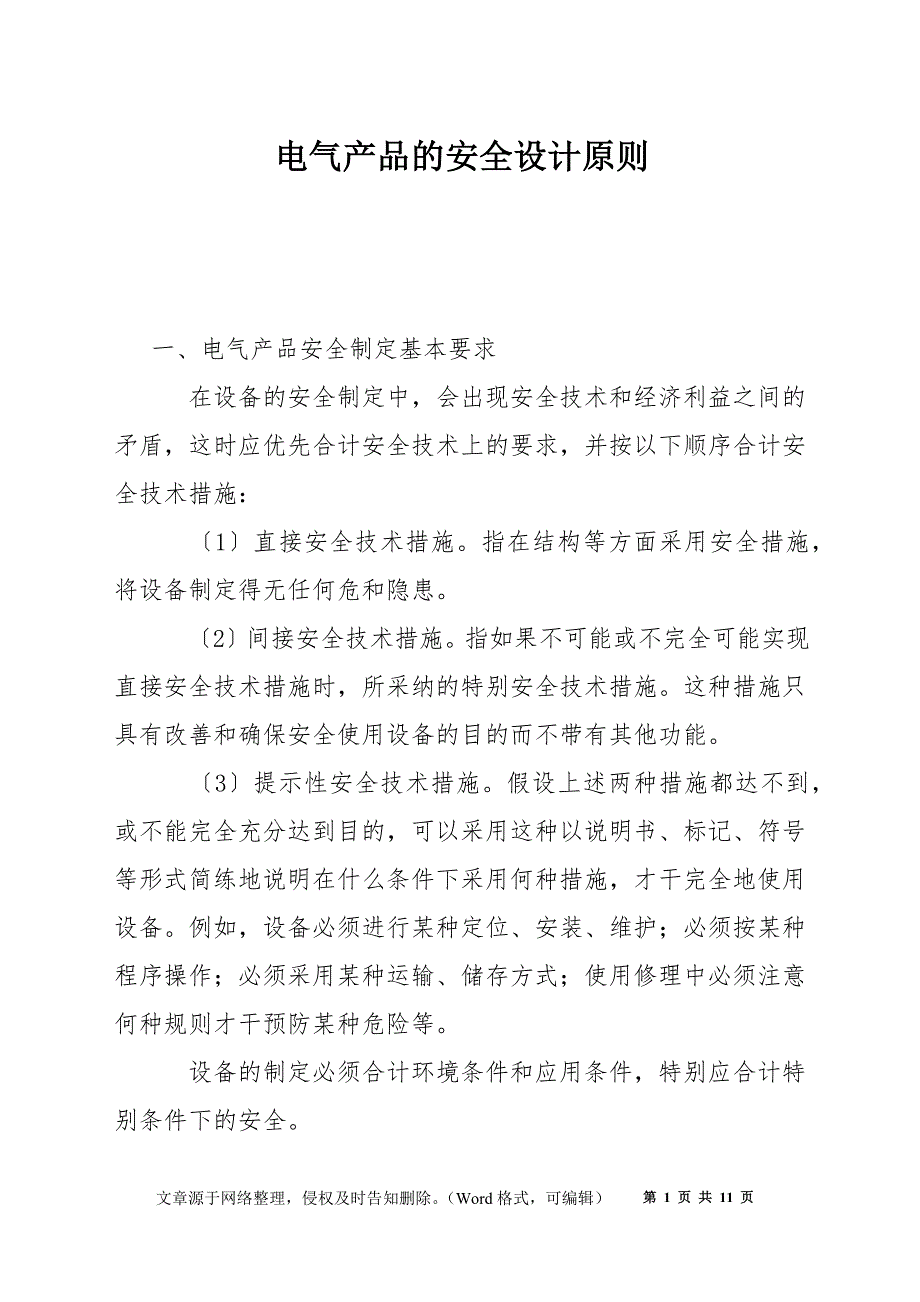 电气产品的安全设计原则
一、电气产品安全制定基本要求
在设备的安全制定中，会出现安全技术和经济利益之间的
矛盾，这时应优先合计安全技术上的要求，并按以下顺序合计安
全技术措施：
〔1〕直接安全技术措施。指在结构等方面采用安全措施，
将设备制定得无任何危和隐患。
〔2〕间接安全技术措施。指如果不可能或不完全可能实现
直接安全技术措施时，所采纳的特别安全技术措施。这种措施只
具有改善和确保安全使用设备的目的而不带有其他功能。
〔3〕提示性安全技术措施。假设上述两种措施都达不到，
或不能完全充分达到目的，可以采用这种以说明书、标记、符号
等形式简练地说明在什么条件下采用何种措施，才干完全地使用
设备。例如，设备必须进行某种定位、安装、维护；必须按某种
程序操作；必须采用某种运输、储存方式；使用修理中必须注意
何种规则才干预防某种危险等。
设备的制定必须合计环境条件和应用条件，特别应合计特
别条件下的安全。
文章源于网络整理，侵权及时告知删除。（Word 格式，可编辑） 第 1 页 共 11 页